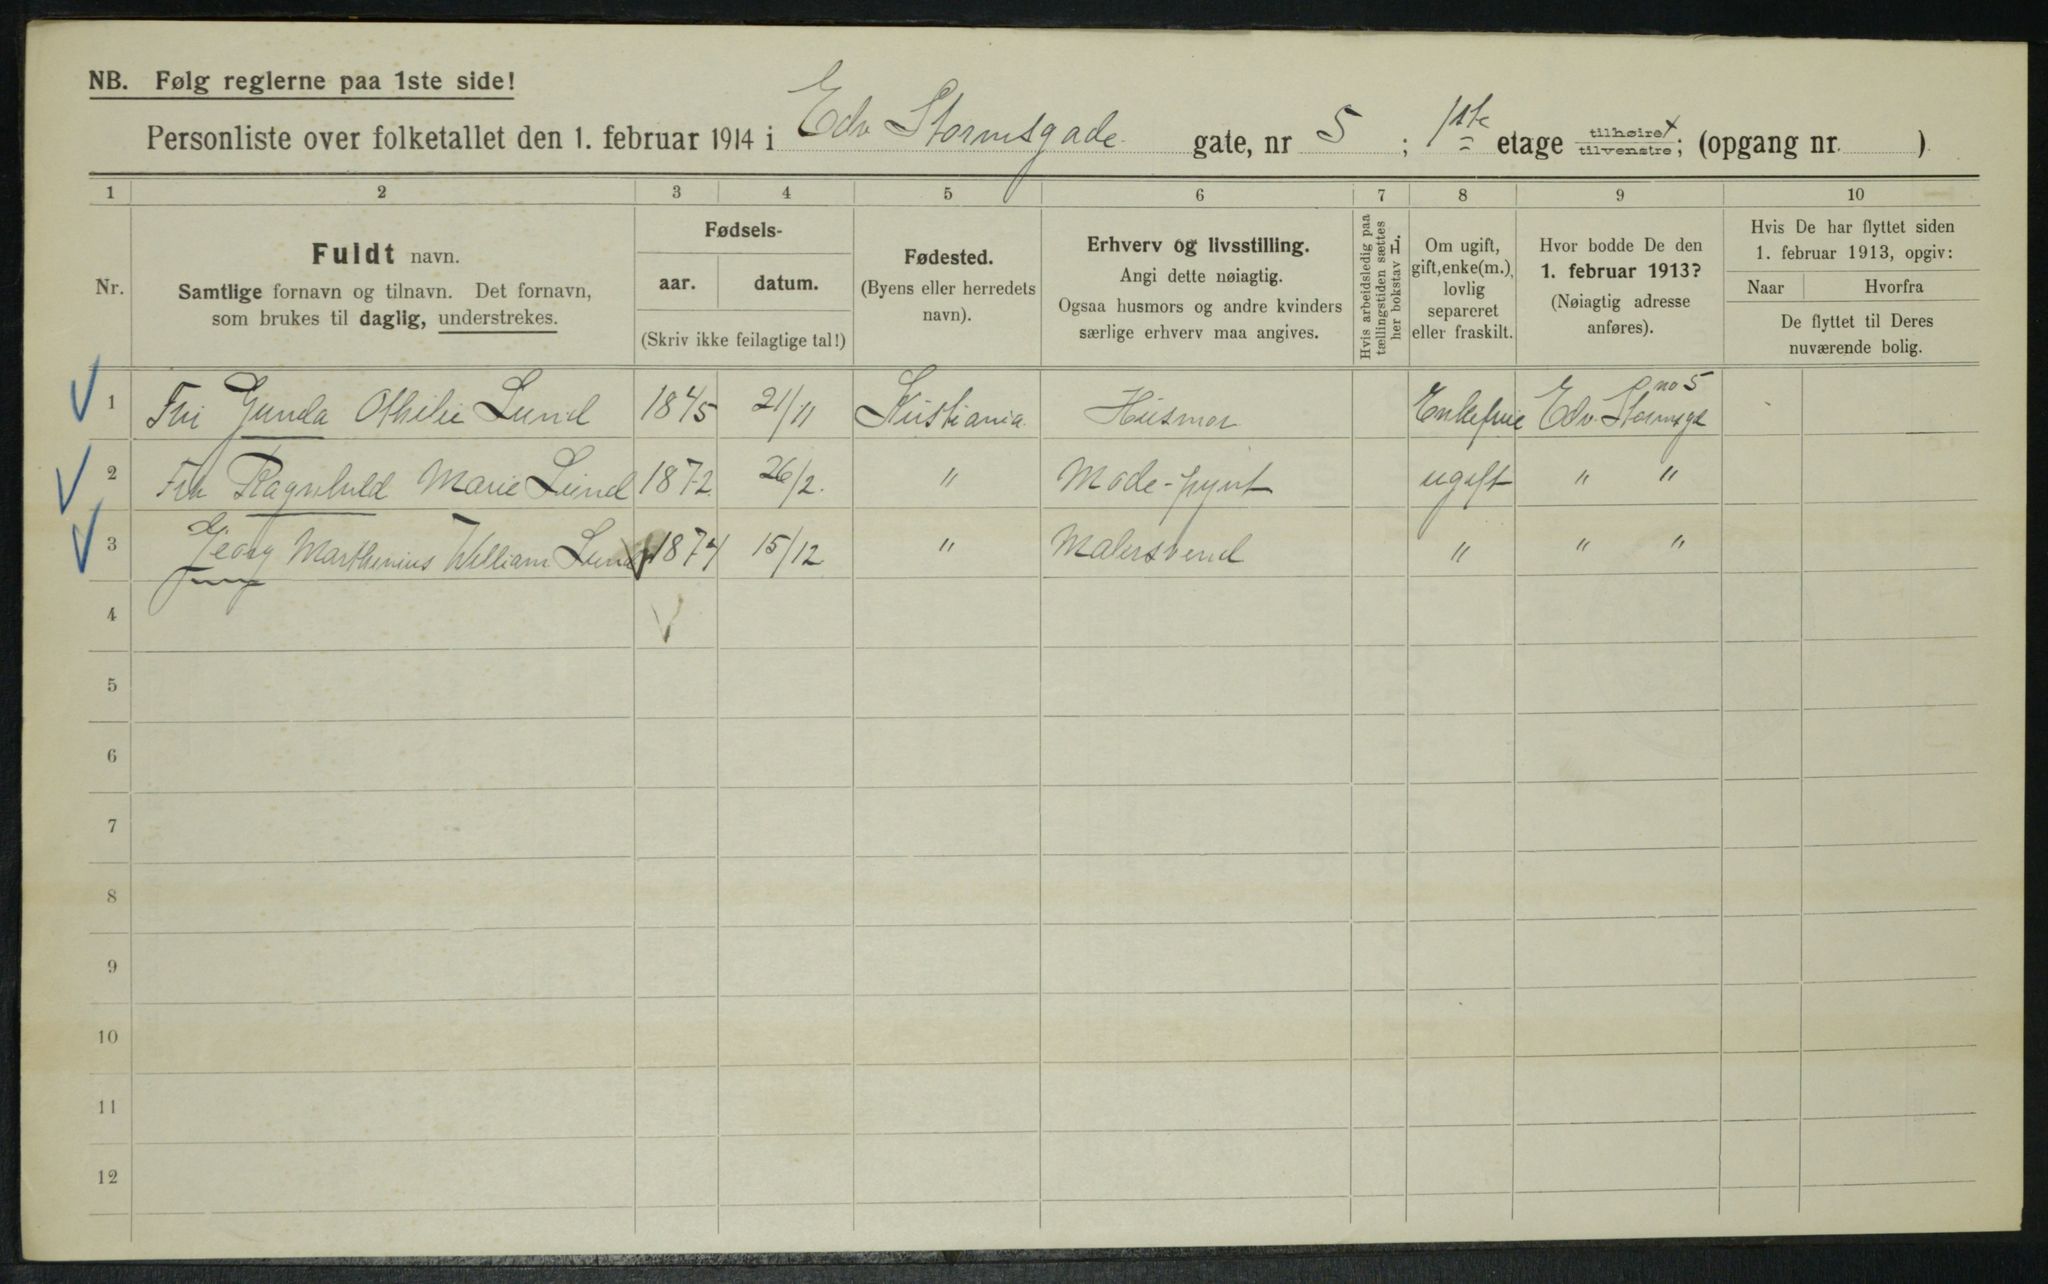 NB. Følg reglerne paa 1ste side!
Personliste over folketallet den 1. februar 1914 i Edv Stormsgade gate, nr 5 ; 1ste etage tilhøire/tilvenstre; (opgang nr. )
1 2 3 4 5 6 7 8 9 10
Nr.
Fuldt navn.
Samtlige fornavn og tilnavn. Det fornavn,
som brukes til daglig, understrekes.
Fødsels-
aar. datum.
(Skriv ikke feilagtige tal!)
Fødested.
(Byens eller herredets
navn).
Erhverv og livsstilling.
Angi dette nøiagtig.
Ogsaa husmors og andre kvinders
særlige erhverv maa angives.
Hvis arbeidsledig paa
tællingstiden sættes
her bokstav L.
Om ugift,
gift, enke(m.),
lovlig
separeret
eller fraskilt.
Hvor bodde De den
1. februar 1913?
(Nøiagtig adresse
anføres).
Hvis De har flyttet siden
1. februar 1913, opgiv:
Naar Hvorfra
De flyttet til Deres
nuværende bolig.
1 Fru Gunda Othilie Lund 1845 21/11 Kristiania Husmor Enkefrue Edv. Stormsgt no 5
2 Frk Ragnhild Marie Lund 1872 26/2 " Mode-pynt ugift " "
3 Georg Marthinius William Lund 1874 15/12 " Malersvend " " "
4
5
6
7
8
9
10
11
12